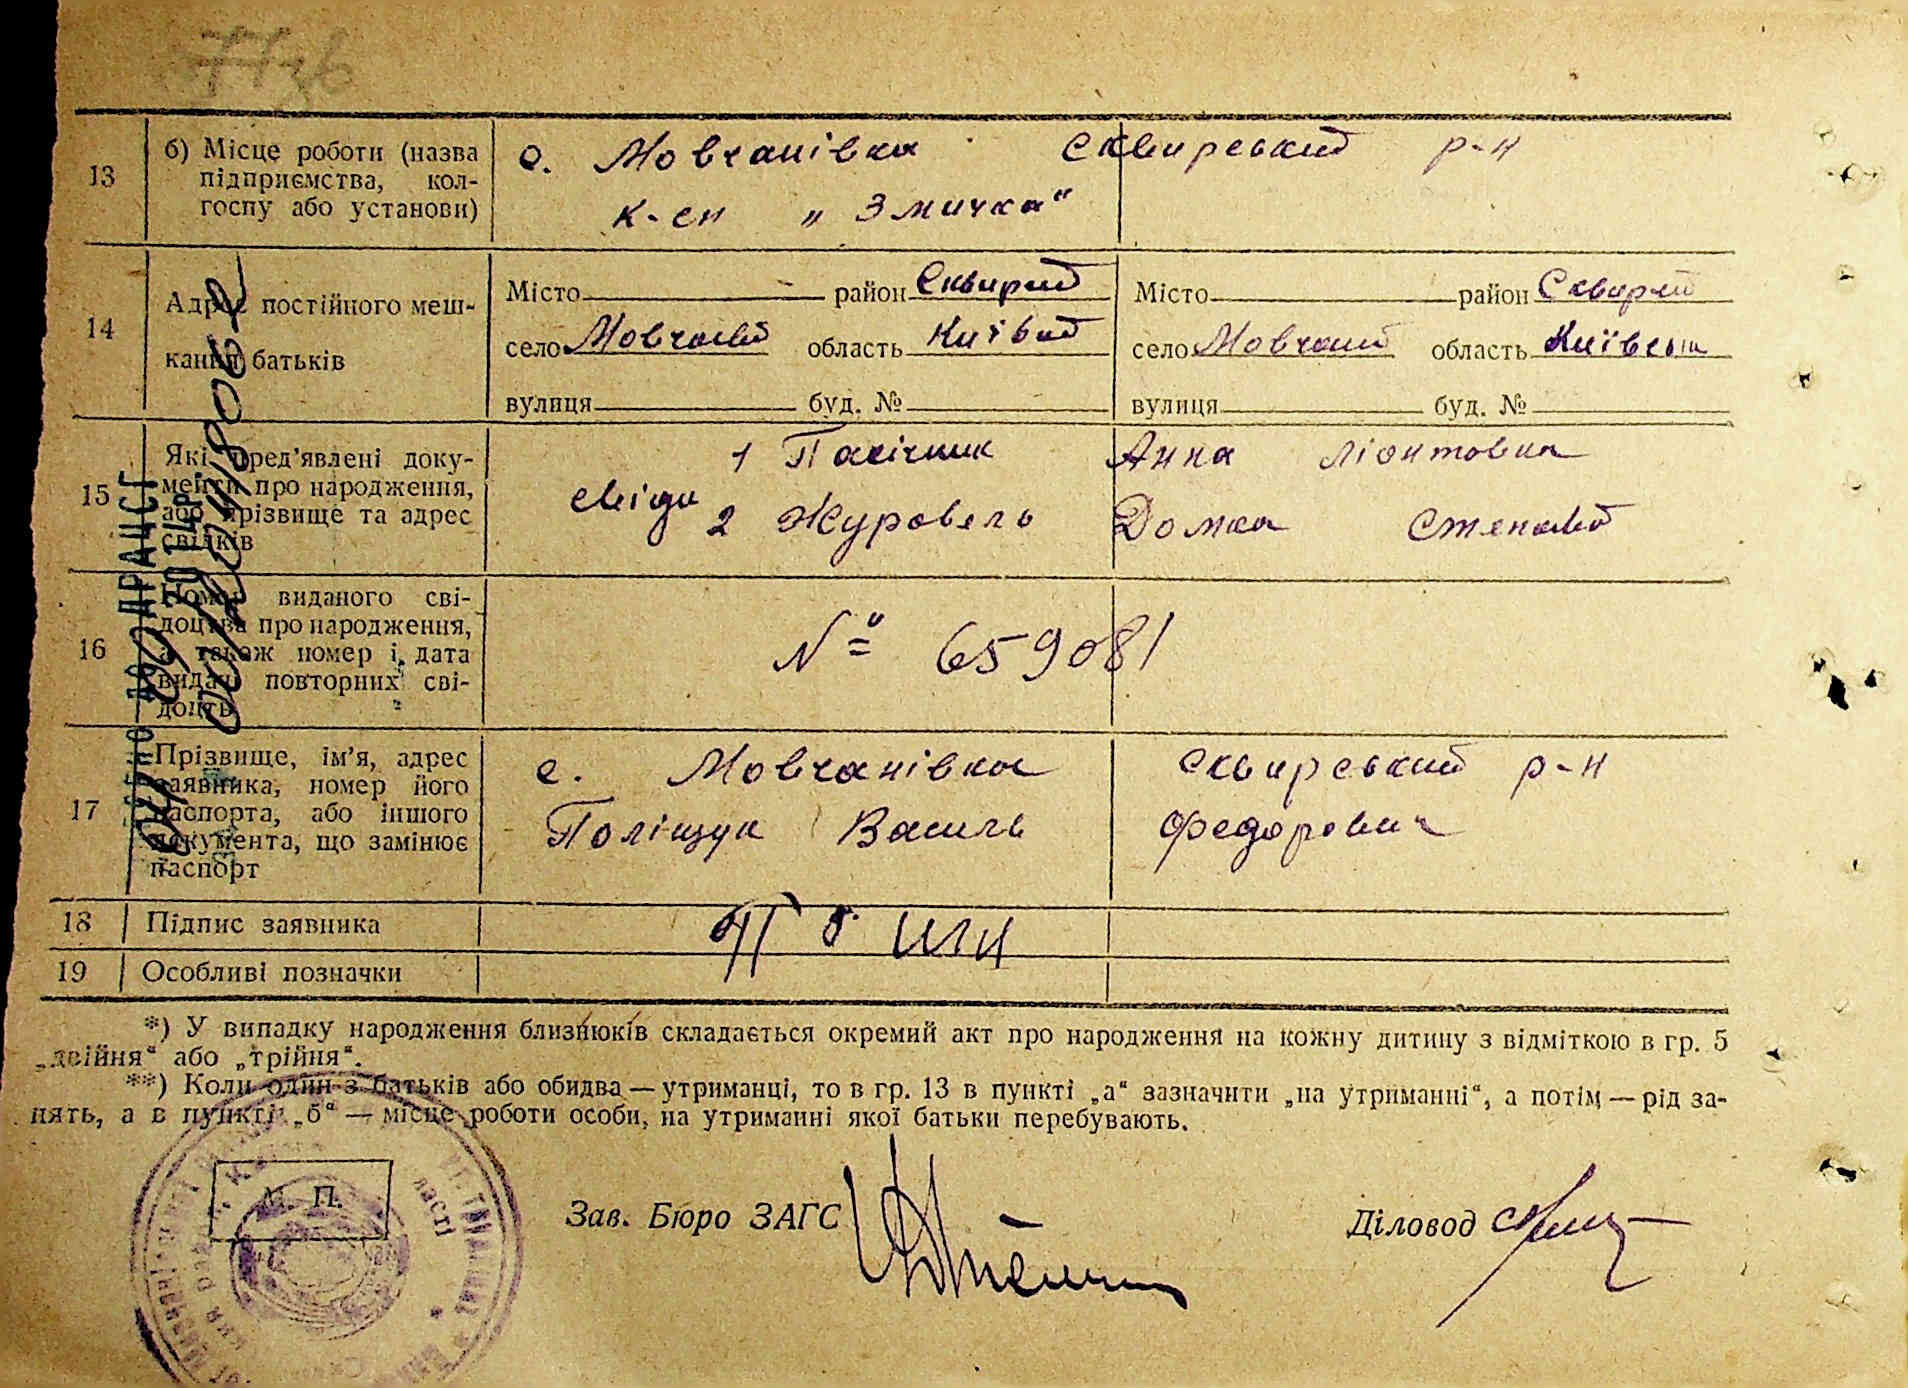 13 б) Місце роботи (назва підприємства, колгоспу або установи)
с. Мовчанівка Сквирський р-н
к-сп „Змичка“
14 Адрес постійного мешкання батьків
Місто район Сквирсь
село Мовчан область Київсь
вулиця буд. №
Місто район Сквирсь
село Мовчан область Київська
вулиця буд. №
15 Які пред’явлені документи про народження, або прізвище та адрес свідків
свідки
1 Пасічник Анна Ліонтовна
2 Журовель Домка Степанів
16 Номер виданого свідоцтва про народження, а також номер і дата видачі повторних свідоцтв
№ 659081
17 Прізвище, ім’я, адрес заявника, номер його паспорта, або іншого документа, що замінює паспорт
с. Мовчанівка Сквирський р-н
Поліщук Василь Федорович
18 Підпис заявника
19 Особливі позначки
*) У випадку народження близнюків складається окремий акт про народження на кожну дитину з відміткою в гр. 5
„двійня“ або „трійня“.
**) Коли один з батьків або обидва — утриманці, то в гр. 13 в пункті „а“ зазначити „на утриманні“, а потім — рід за-
нять, а в пункті „б“ — місце роботи особи, на утриманні якої батьки перебувають.
М. П.
Зав. Бюро ЗАГС
Діловод